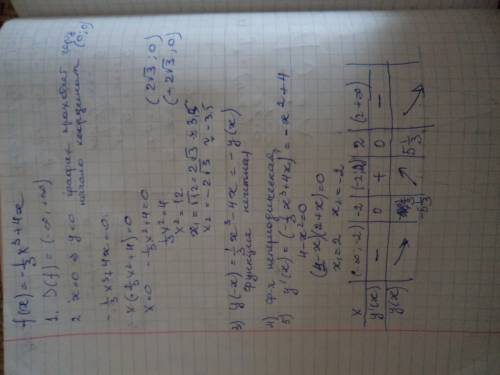 f(x) = -1/3 x³ + 4x
1. D(f) = (-∞; +∞)
2 x=0 ⇒ y=0 график проходит через
начало координат (0;0)
-1/3 x³ + 4x = 0
x(-1/3 x² + 4) = 0
x = 0 -1/3 x² + 4 = 0
1/3 x² = 4
x² = 12
x₁ = √12 = 2√3 ≈ 3,5 (2√3; 0)
x₂ = -2√3 ≈ -3,5 (-2√3; 0)
3) y(-x) = 1/3 x³ - 4x = -y(x)
функция нечетная
4) ф-я непериодическая
5) y'(x) = (-1/3 x³ + 4x)' = -x² + 4
4 - x² = 0
(2-x)(2+x) = 0
x₁ = 2 x₂ = -2
x (-∞; -2) -2 (-2;2) 2 (2;+∞)
y'(x) - 0 + 0 -
y(x) ↘ -5 1/3 ↗ 5 1/3 ↘